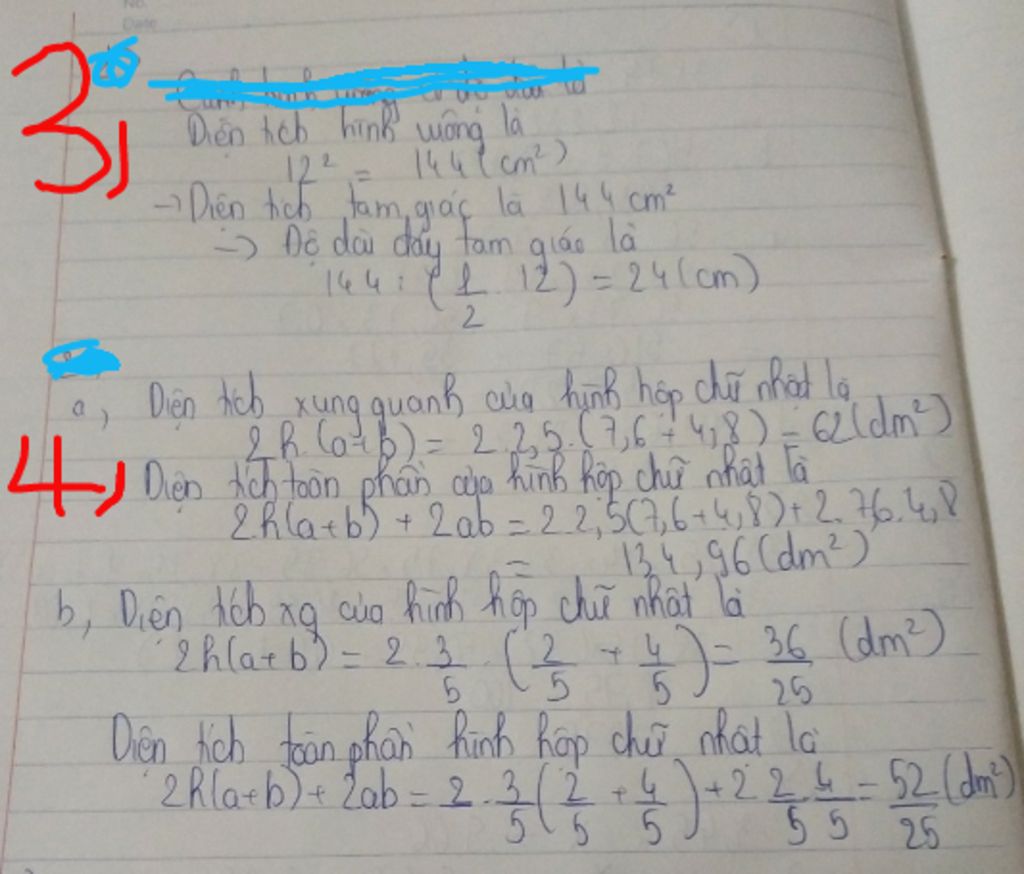 No.
Date
3)
Diện tích hình vuông là
12² = 144 (cm²)
→ Diện tích tam giác là 144 cm²
→ Độ dài đáy tam giác là
144 : (1/2 . 12) = 24 (cm)
a, Diện tích xung quanh của hình hộp chữ nhật là
2h.(a+b) = 2.2,5.(7,6+4,8) = 62 (dm²)
4)
Diện tích toàn phần của hình hộp chữ nhật là
2h(a+b) + 2ab = 2.2,5(7,6+4,8)+2.7,6.4,8
= 134,96 (dm²)
b, Diện tích xq của hình hộp chữ nhật là
2h(a+b) = 2.3/5.(2/5 + 4/5) = 36/25 (dm²)
Diện tích toàn phần hình hộp chữ nhật là
2h(a+b) + 2ab = 2.3/5(2/5 + 4/5) + 2 2/5 4/5 = 52/25 (dm²)